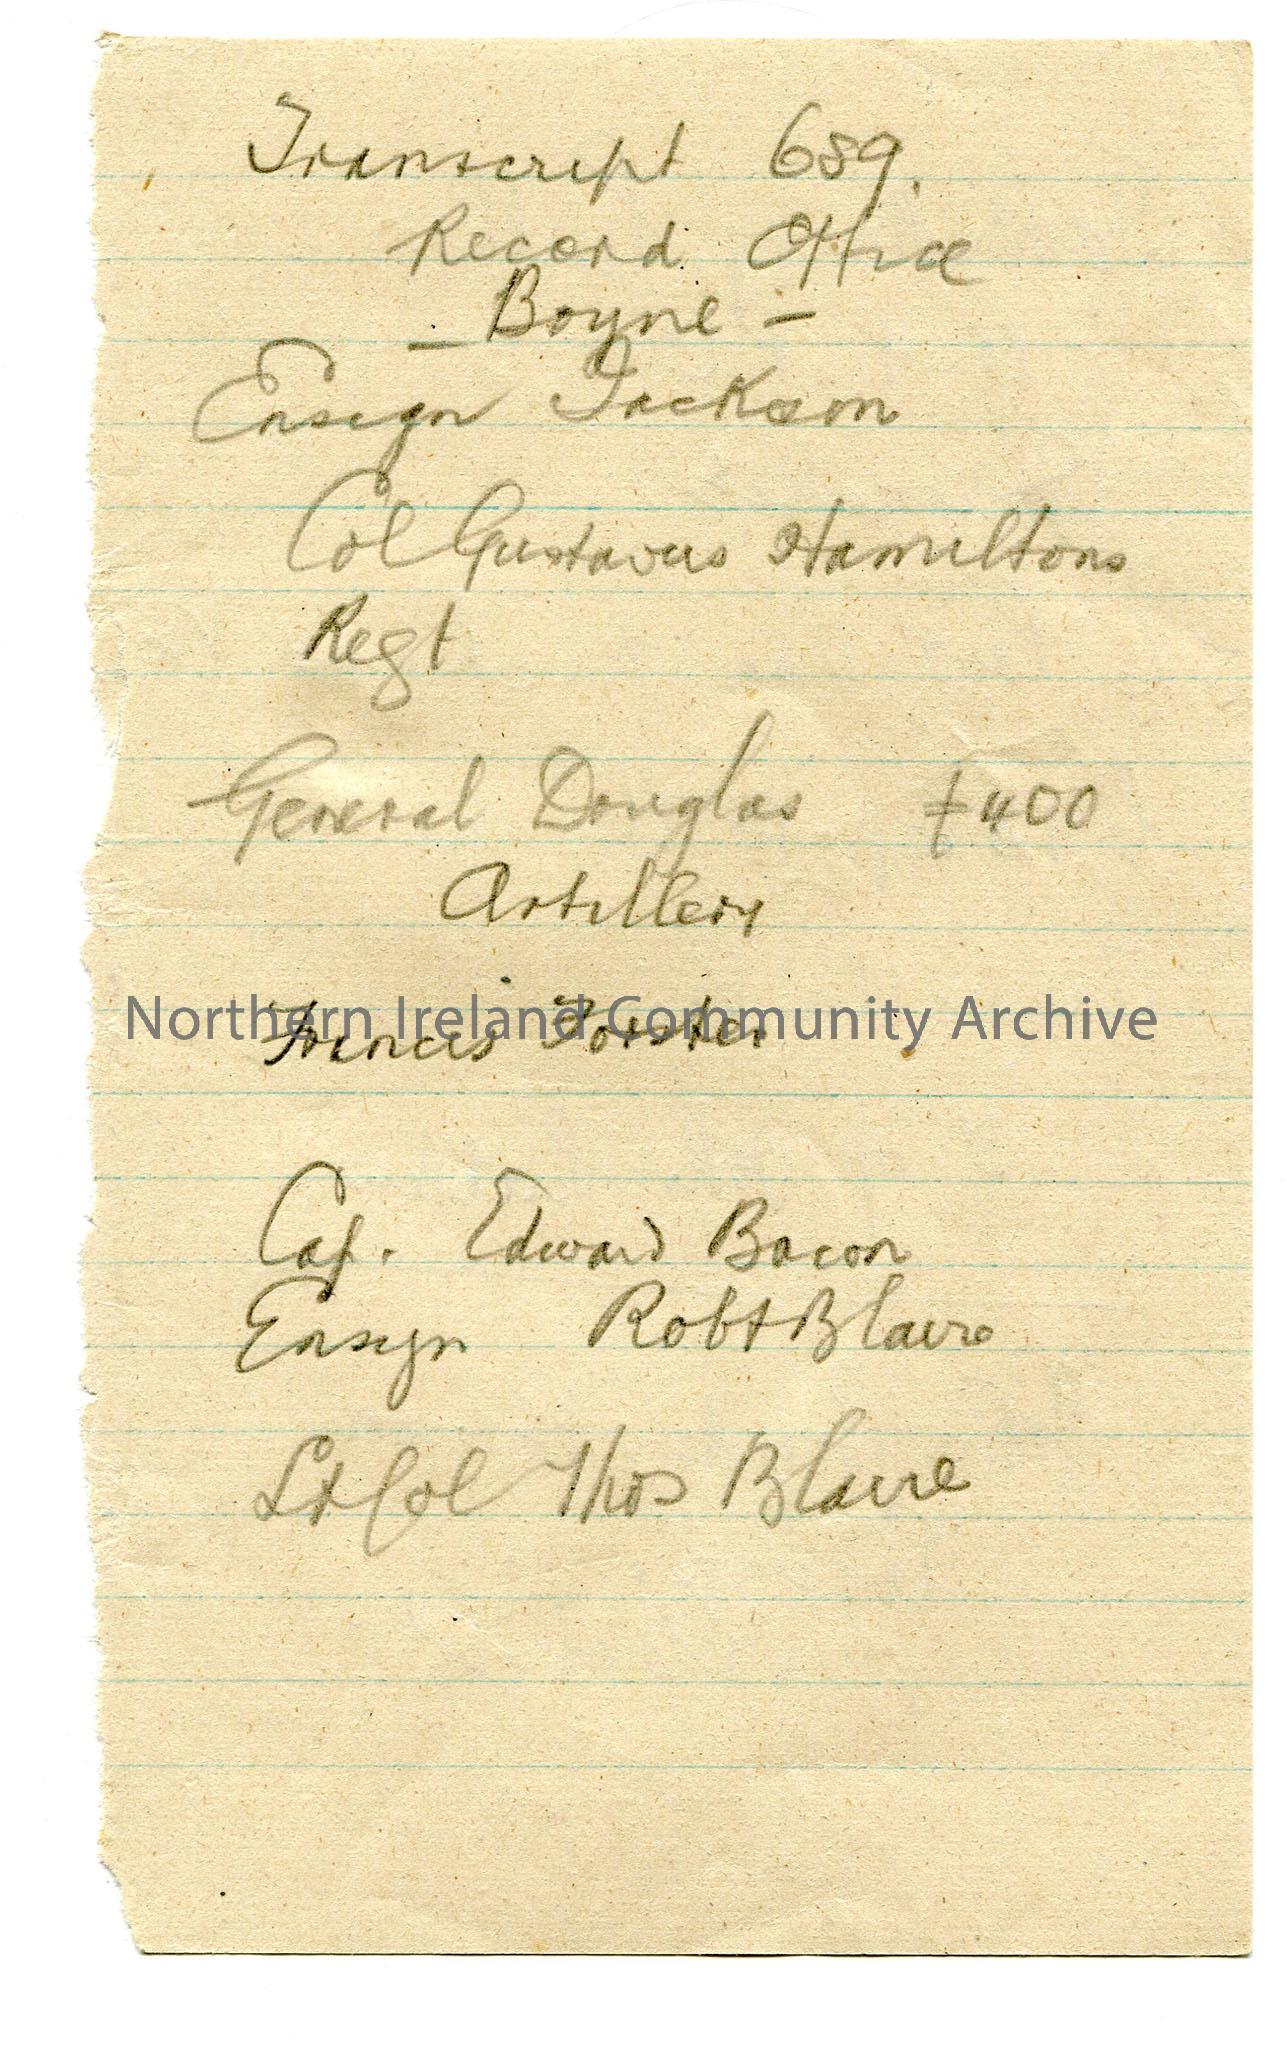 Transcript 689.
Record Office
- Boyne -
Ensign Jackson
Col Gustavus Hamiltons
Regt
General Douglas £400
Artillery
Northern Ireland Community Archive
Francis Forster
Cap. Edward Bacon
Ensign Robt Blaire
Lt Col Thos Blaire